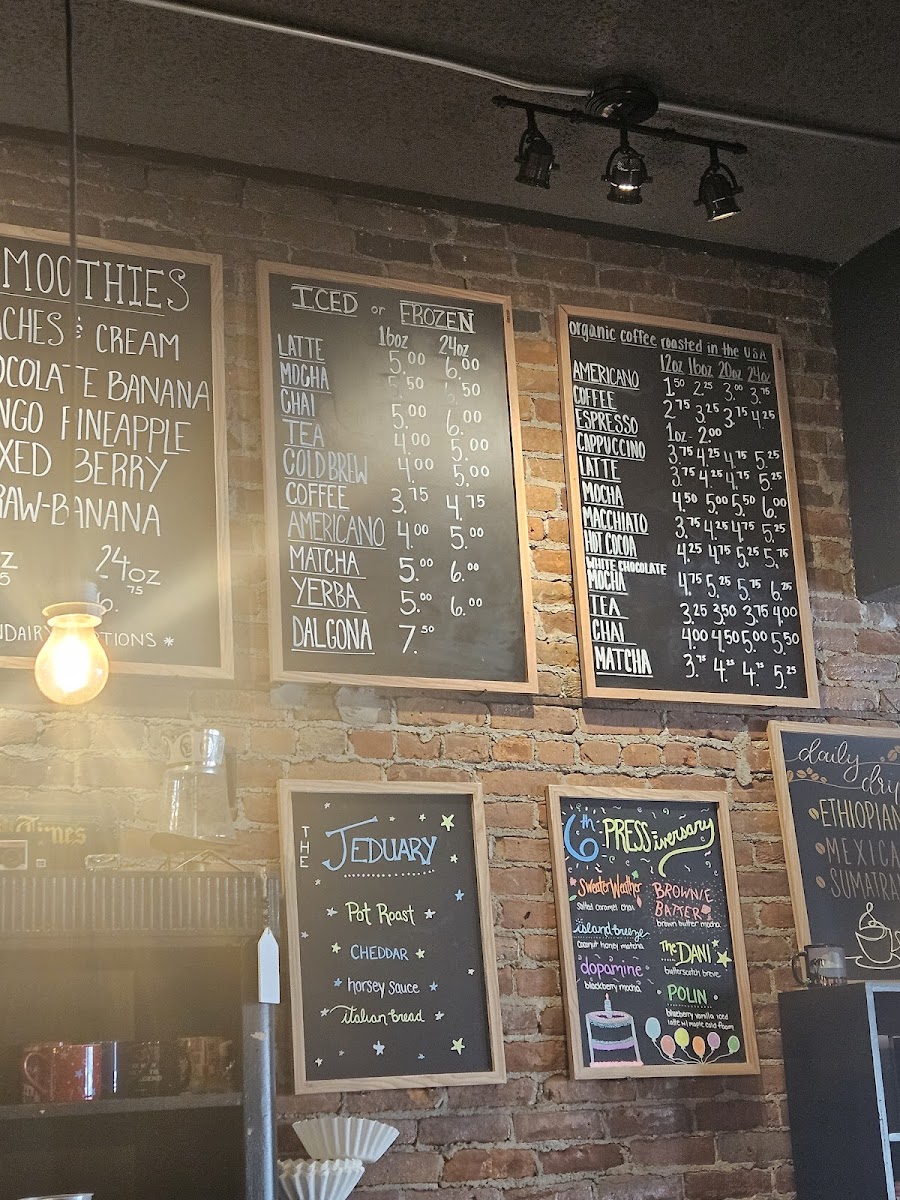 MOOTHIES
CHES & CREAM
OCOLATE BANANA
NGO PINEAPPLE
XED BERRY
RAW-BANANA
24oz
NDAIRY OPTIONS *
ICED or FROZEN
16oz 24oz
LATTE 5.00 6.00
MOCHA 5.50 6.50
CHAI 5.00 6.00
TEA 4.00 5.00
COLD BREW 4.00 5.00
COFFEE 3.75 4.75
AMERICANO 4.00 5.00
MATCHA 5.00 6.00
YERBA 5.00 6.00
DALGONA 7.50
organic coffee roasted in the USA
12oz 16oz 20oz 24oz
AMERICANO 1.50 2.25 3.00 3.75
COFFEE 2.75 3.25 3.75 4.25
ESPRESSO 1oz - 2.00
CAPPUCCINO 3.75 4.25 4.75 5.25
LATTE 3.75 4.25 4.75 5.25
MOCHA 4.50 5.00 5.50 6.00
MACCHIATO 3.75 4.25 4.75 5.25
HOT COCOA 4.25 4.75 5.25 5.75
WHITE CHOCOLATE
MOCHA 4.75 5.25 5.75 6.25
TEA 3.25 3.50 3.75 4.00
CHAI 4.00 4.50 5.00 5.50
MATCHA 3.75 4.25 4.75 5.25
THE
JEDUARY
Pot Roast
CHEDDAR
horsey sauce
italian bread
6th PRESSiversary
Sweater Weather
Salted caramel chai
island breeze
Coconut honey matcha
dopamine
blackberry mocha
BROWNIE
BATTER
brown butter mocha
The DANI
butterscotch breve
POLIN
blueberry vanilla iced
latte w/ maple cold foam
daily
drip
ETHIOPIAN
MEXICA
SUMATRA
Times